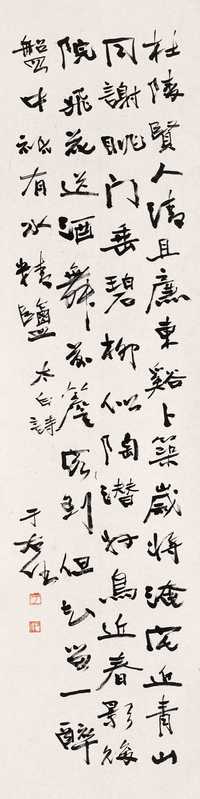 杜陵賢人清且廉東谿卜築歲將淹宅近青山
同謝朓门垂碧柳似陶潛好鳥迎春歌後
院飛花送酒舞前簷客到但知留一醉
盤中祇有水精鹽 太白詩
于右任